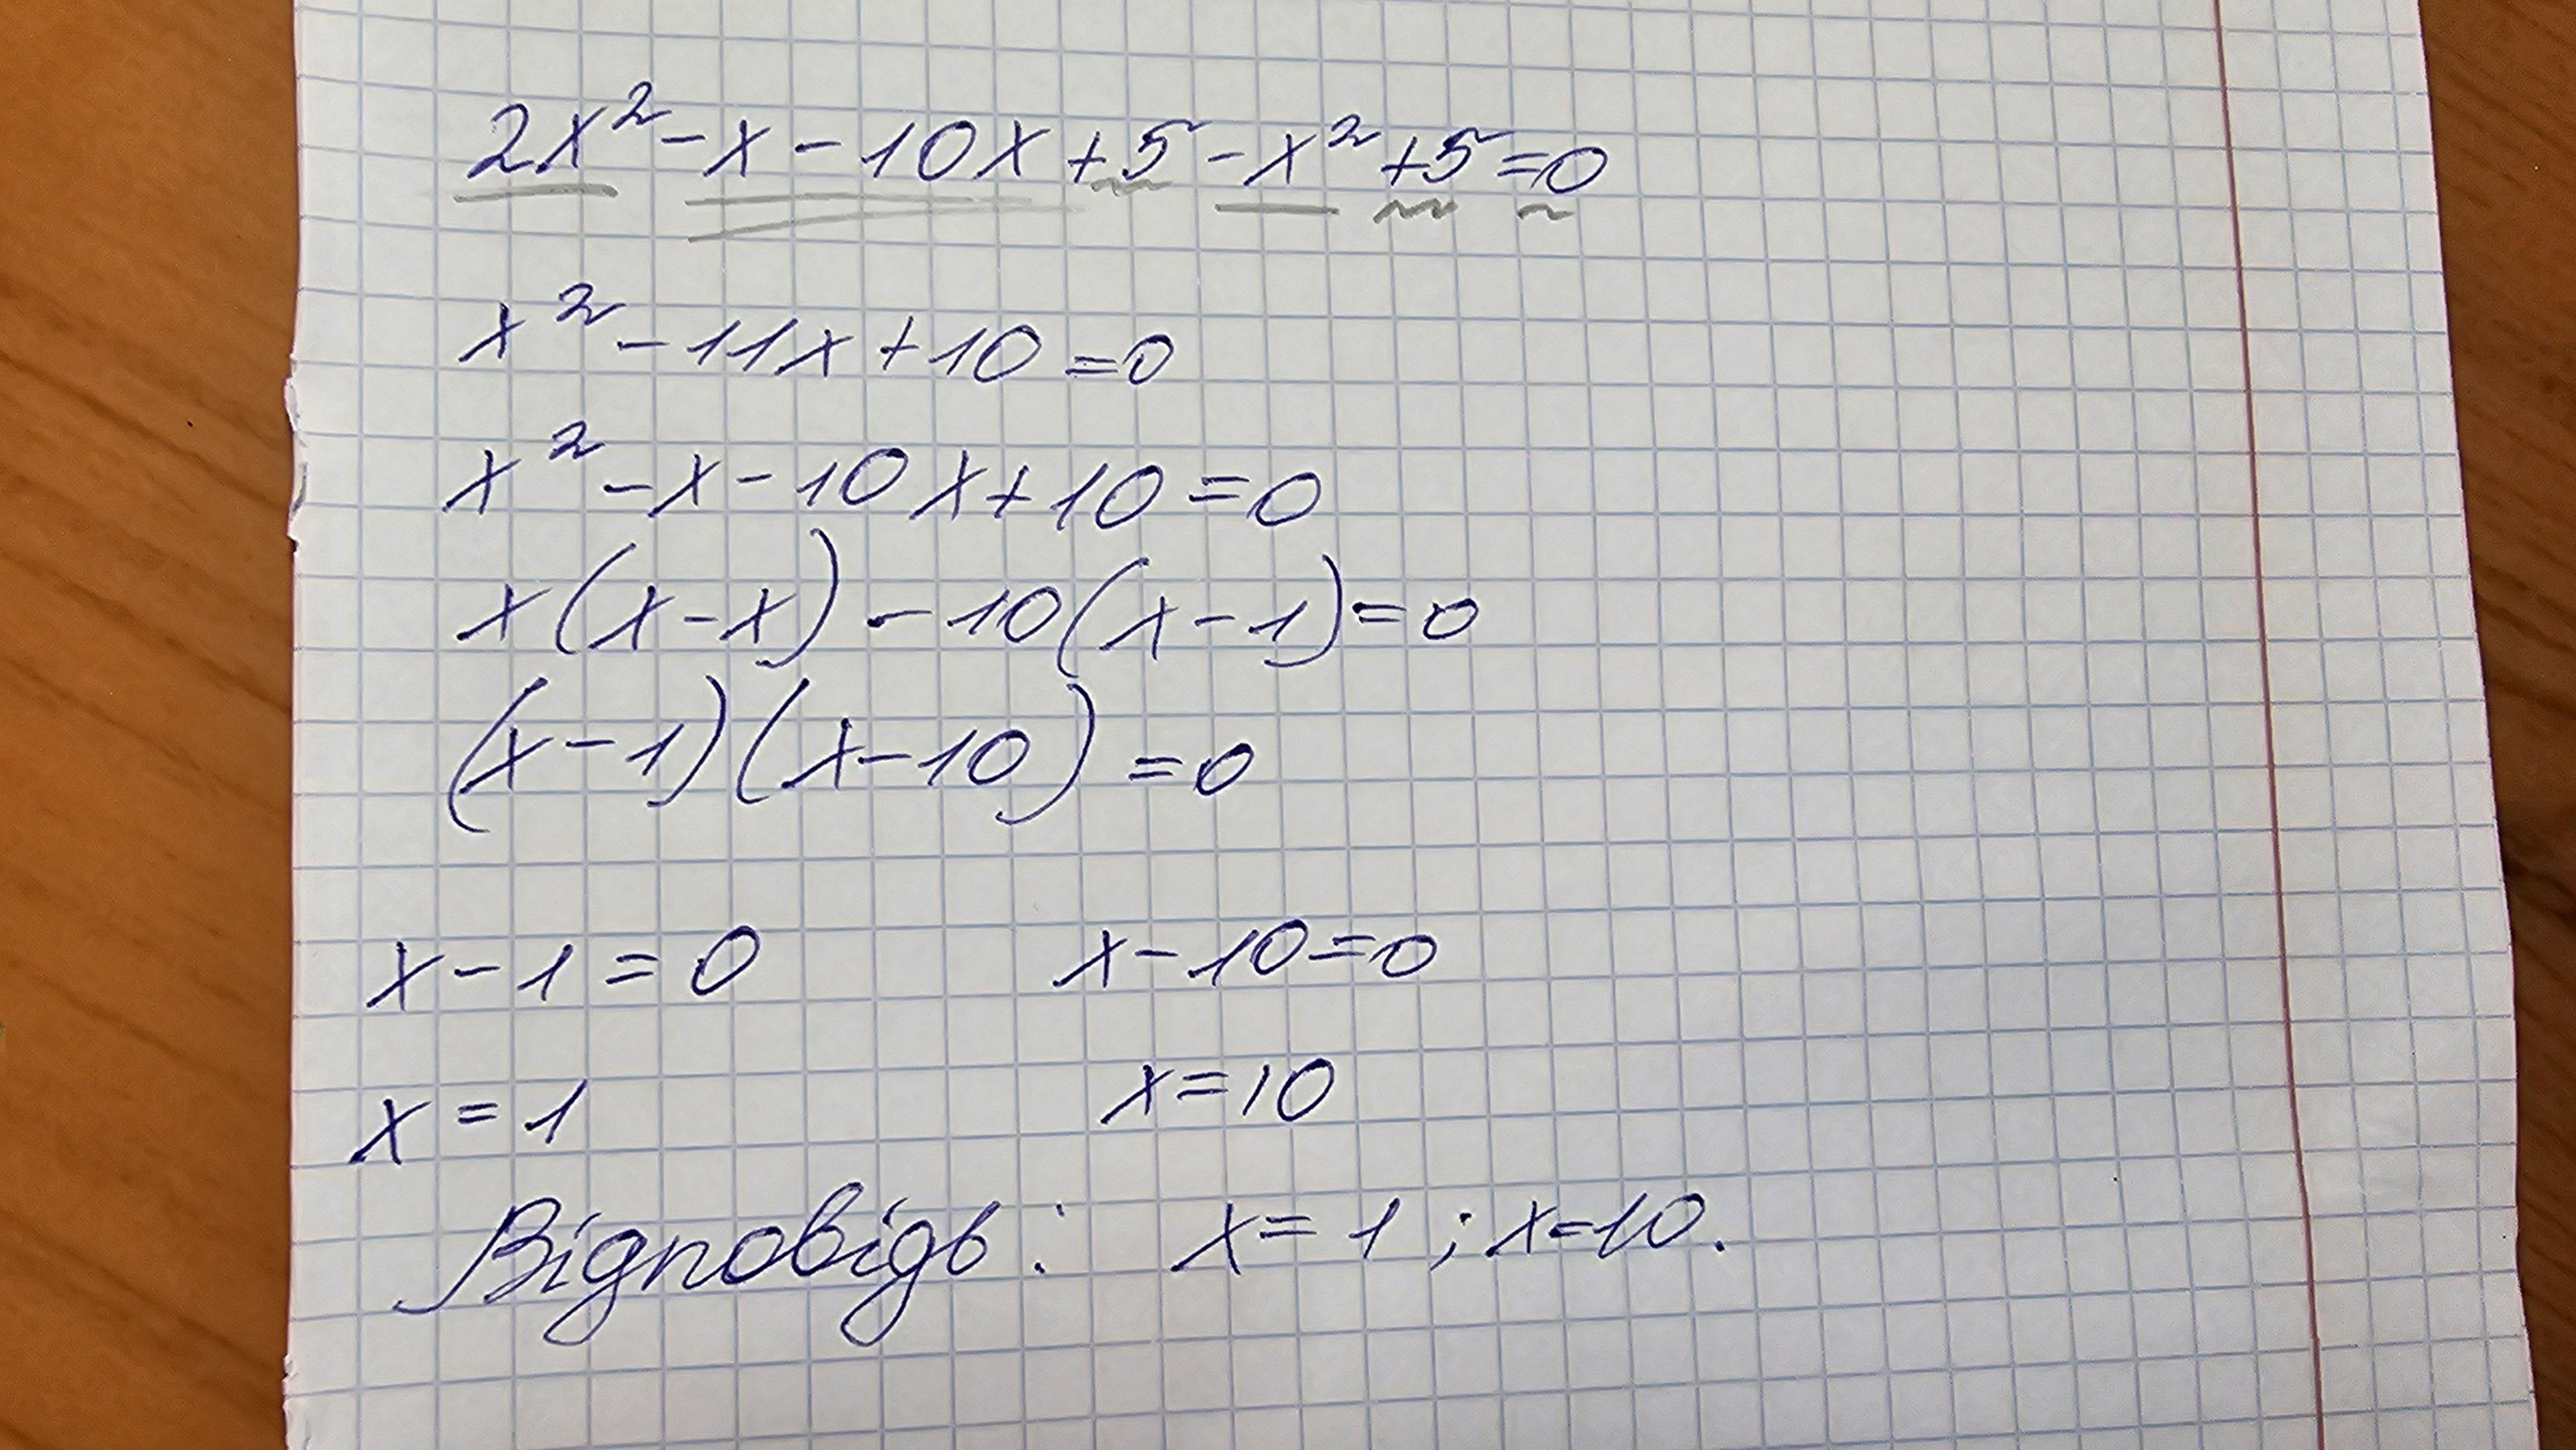 2x² - x - 10x + 5 - x² + 5 = 0
x² - 11x + 10 = 0
x² - x - 10x + 10 = 0
x(x - x) - 10(x - 1) = 0
(x - 1)(x - 10) = 0
x - 1 = 0 x - 10 = 0
x = 1 x = 10
Відповідь: x = 1 ; x = 10.